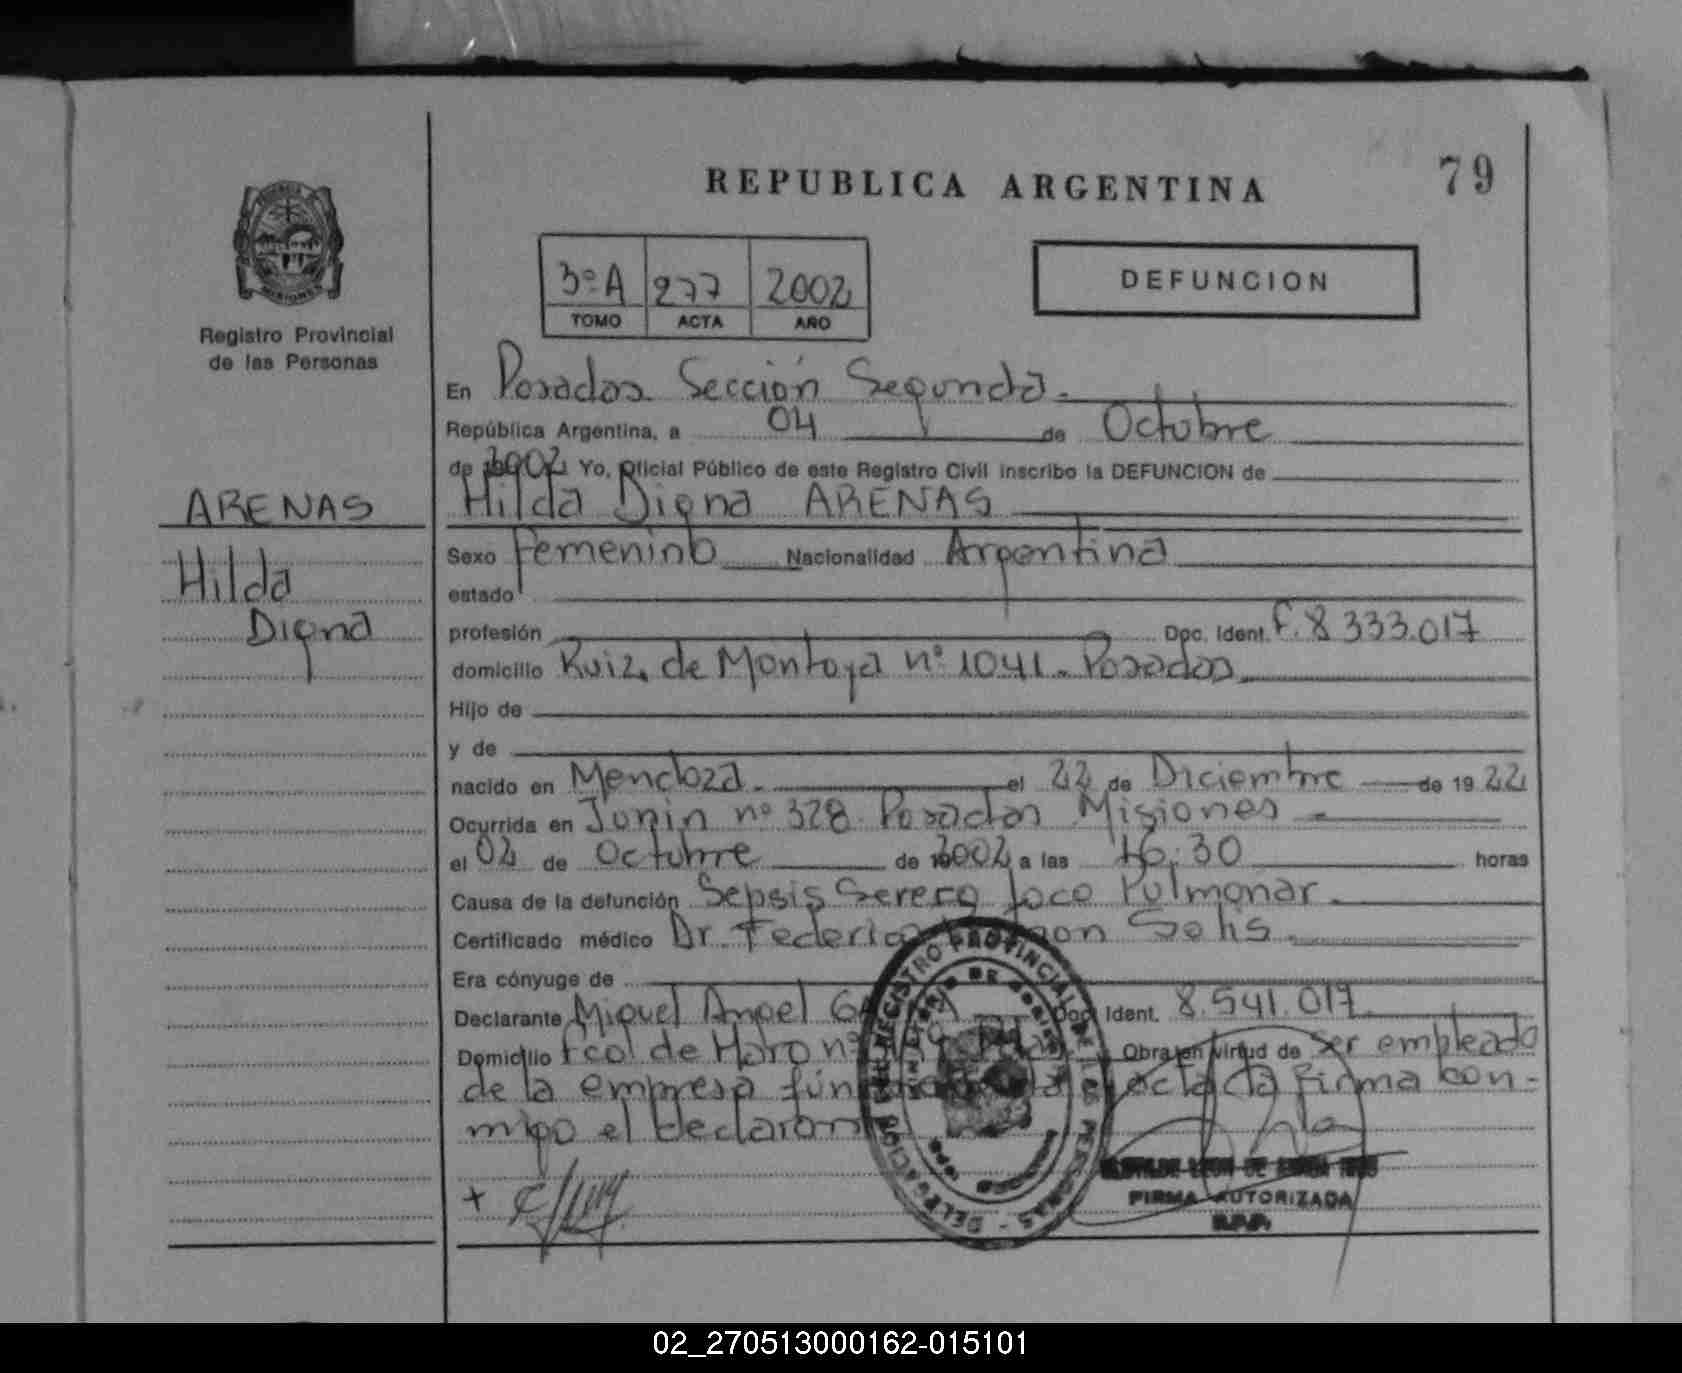 79
REPUBLICA ARGENTINA
3º A 277 2002
TOMO ACTA AÑO
DEFUNCION
Registro Provincial
de las Personas
En Posadas Sección Segunda.
República Argentina, a 04 de Octubre
de 2002 Yo, Oficial Público de este Registro Civil inscribo la DEFUNCION de
Hilda Digna ARENAS
ARENAS
Hilda
Digna
Sexo Femenino Nacionalidad Argentina
estado
profesión Doc. Ident. F. 8 333.017
domicilio Ruiz de Montoya nº 1041. Posadas
Hijo de
y de
nacido en Mendoza. el 22 de Diciembre de 1922
Ocurrida en Junin nº 328 Posadas Misiones
el 02 de Octubre de 2002 a las 16:30 horas
Causa de la defunción Sepsis Severa foco Pulmonar
Certificado médico Dr. Federico Solis
Era cónyuge de
Declarante Miguel Angel Doc. Ident. 8.541.017
Domicilio Fcol de Haro nº Obra en virtud de ser empleado
de la empresa acta la firma con-
migo el declarante
REGISTRO PROVINCIAL DE LAS PERSONAS
FIRMA AUTORIZADA
R.P.P.
02_270513000162-015101